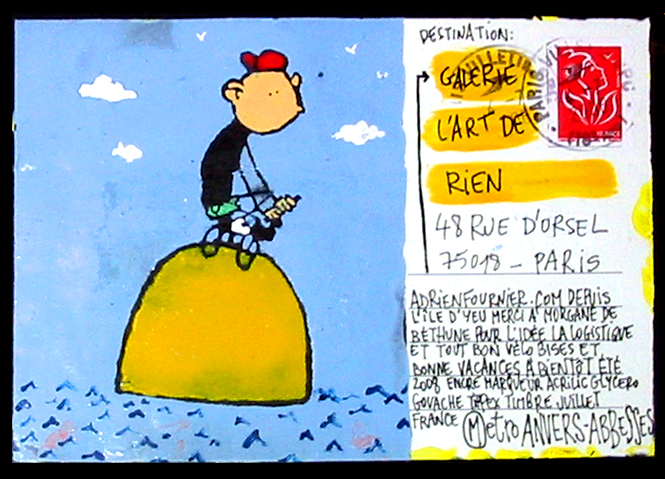 DESTINATION:
GALERIE
L'ART DE
RIEN
48 RUE D'ORSEL
75018 - PARIS
ADRIENFOURNIER.COM DEPUIS
L'ILE D'YEU MERCI A MORGANE DE
BETHUNE POUR L'IDÉE LA LOGISTIQUE
ET TOUT BON VÉLO BISES ET
BONNE VACANCES A BIENTÔT ÉTÉ
2008 ENCRE MARQUEUR ACRILIC GLYCERO
GOUACHE TIPEX TIMBRE JUILLET
FRANCE Metro ANVERS-ABBESSES
PARIS
FRANCE